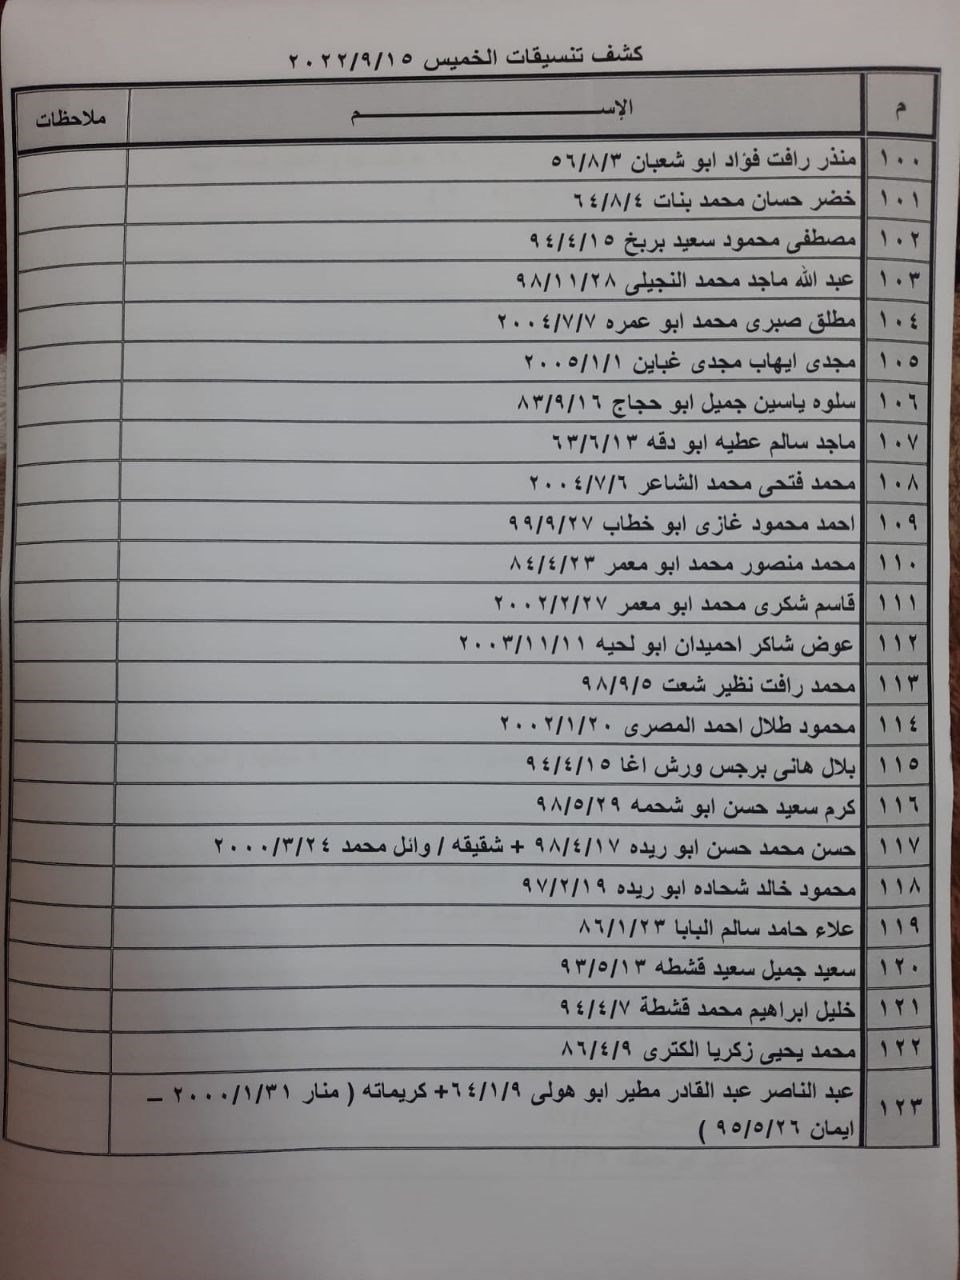 كشف تنسيقات الخميس ٢٠٢٢/٩/١٥
م الإســــــــم ملاحظات
١٠٠ منذر رافت فؤاد ابو شعبان ٥٦/٨/٣
١٠١ خضر حسان محمد بنات ٦٤/٨/٤
١٠٢ مصطفى محمود سعيد بربخ ٩٤/٤/١٥
١٠٣ عبد الله ماجد محمد النجيلى ٩٨/١١/٢٨
١٠٤ مطلق صبرى محمد ابو عمره ٢٠٠٤/٧/٧
١٠٥ مجدى ايهاب مجدى غباين ٢٠٠٥/١/١
١٠٦ سلوه ياسين جميل ابو حجاج ٨٣/٩/١٦
١٠٧ ماجد سالم عطيه ابو دقه ٦٣/٦/١٣
١٠٨ محمد فتحى محمد الشاعر ٢٠٠٤/٧/٦
١٠٩ احمد محمود غازى ابو خطاب ٩٩/٩/٢٧
١١٠ محمد منصور محمد ابو معمر ٨٤/٤/٢٣
١١١ قاسم شكرى محمد ابو معمر ٢٠٠٢/٢/٢٧
١١٢ عوض شاكر احميدان ابو لحيه ٢٠٠٣/١١/١١
١١٣ محمد رافت نظير شعت ٩٨/٩/٥
١١٤ محمود طلال احمد المصرى ٢٠٠٢/١/٢٠
١١٥ بلال هانى برجس ورش اغا ٩٤/٤/١٥
١١٦ كرم سعيد حسن ابو شحمه ٩٨/٥/٢٩
١١٧ حسن محمد حسن ابو ريده ٩٨/٤/١٧ + شقيقه / وائل محمد ٢٠٠٠/٣/٢٤
١١٨ محمود خالد شحاده ابو ريده ٩٧/٢/١٩
١١٩ علاء حامد سالم البابا ٨٦/١/٢٣
١٢٠ سعيد جميل سعيد قشطه ٩٣/٥/١٣
١٢١ خليل ابراهيم محمد قشطة ٩٤/٤/٧
١٢٢ محمد يحيى زكريا الكترى ٨٦/٤/٩
١٢٣ عبد الناصر عبد القادر مطير ابو هولى ٦٤/١/٩+ كريماته ( منار ٢٠٠٠/١/٣١ –
ايمان ٩٥/٥/٢٦ )